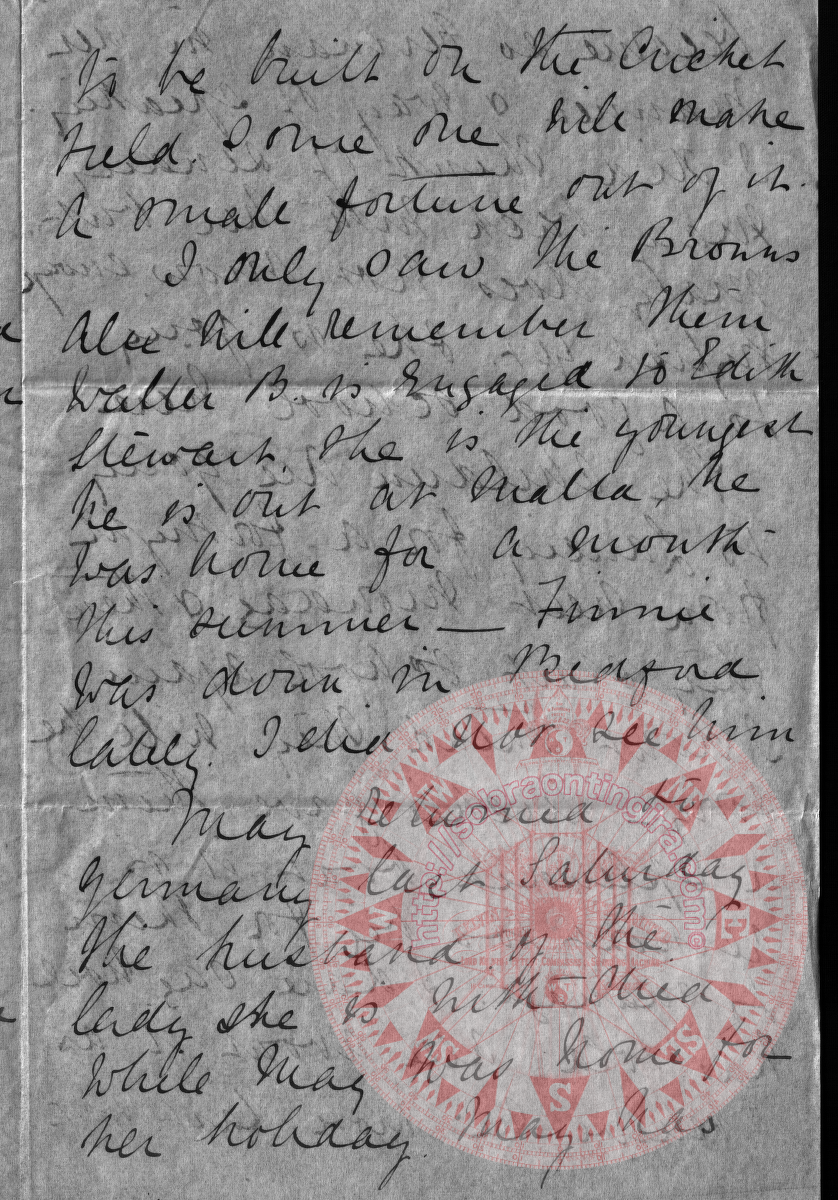 to be built on the Cricket
field. Some one will make
a small fortune out of it.
I only saw the Browns
Alec will remember them
Walter B. is engaged to Edith
Stewart, she is the youngest
he is out at Malta, he
was home for a month
this summer — Finnie
was down in Bedford
lately. I did not see him
May returned to
Germany last Saturday
The husband of the
lady she is with died
while May was home for
her holiday. May has